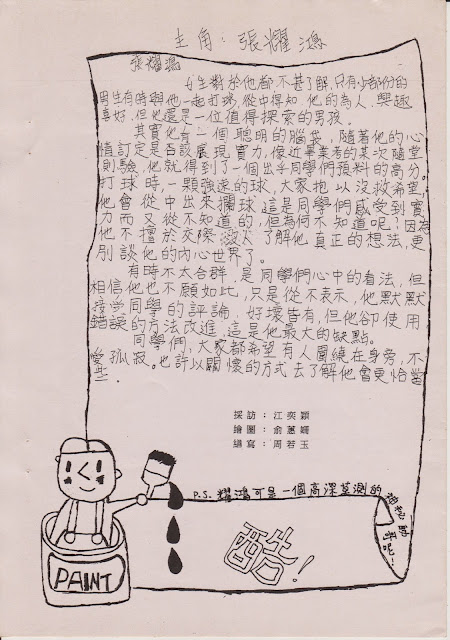 主角：張耀鴻
張耀鴻
女生對於他都不甚了解,只有少部份的
男生有時與他一起打球,從中得知,他的為人,興趣
喜好,但他還是一位值得探索的男孩。
其實他有一個聰明的腦袋,隨著他的心
情訂定是否該展現實力,像近畢業考的某次隨堂
測驗,他就得到了一個出乎同學們預料的高分。
打球時,一顆強速的球,大家抱以沒救希望,
他會從中出來攔球,這是同學們感受到實
力而又從不知道的,但為何不知道呢?因為
他不擅於交際,沒人了解他真正的想法,更
別談他的內心世界了。
有時不太合群,是同學們心中的看法,但
相信他也不願如此,只是從不表示,他默默
接受同學的評論,好壞皆有,但他卻使用
錯誤的方法改進,這是他最大的缺點。
同學們,大家都希望有人圍繞在身旁,不
愛孤寂。也許以關懷的方式去了解他會更恰當
些.
採訪：江奕穎
繪圖：俞蕙姍
編寫：周若玉
P.S.耀鴻可是一個高深莫測的
神秘男
子呢!
酷!
PAINT